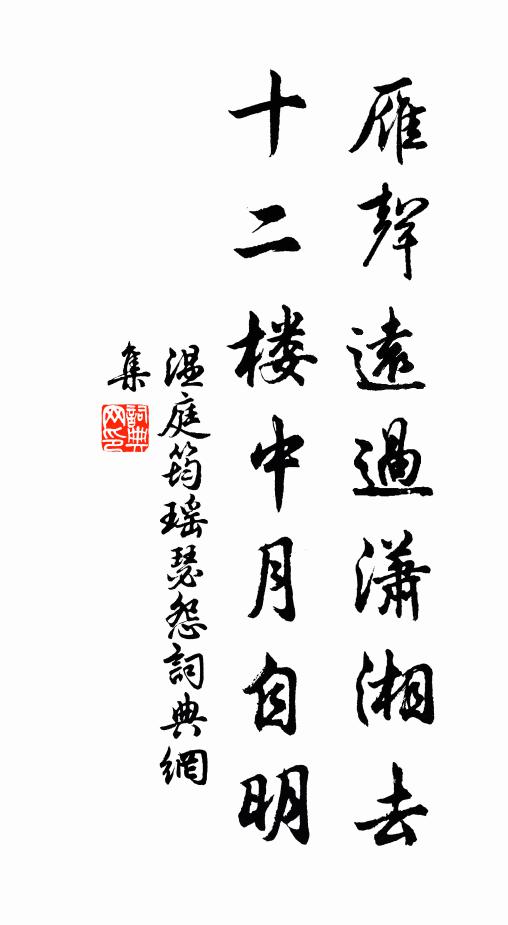 雁聲遠過瀟湘去
十二楼中月自明
温庭筠瑶瑟怨詞典網
集
詞典网印